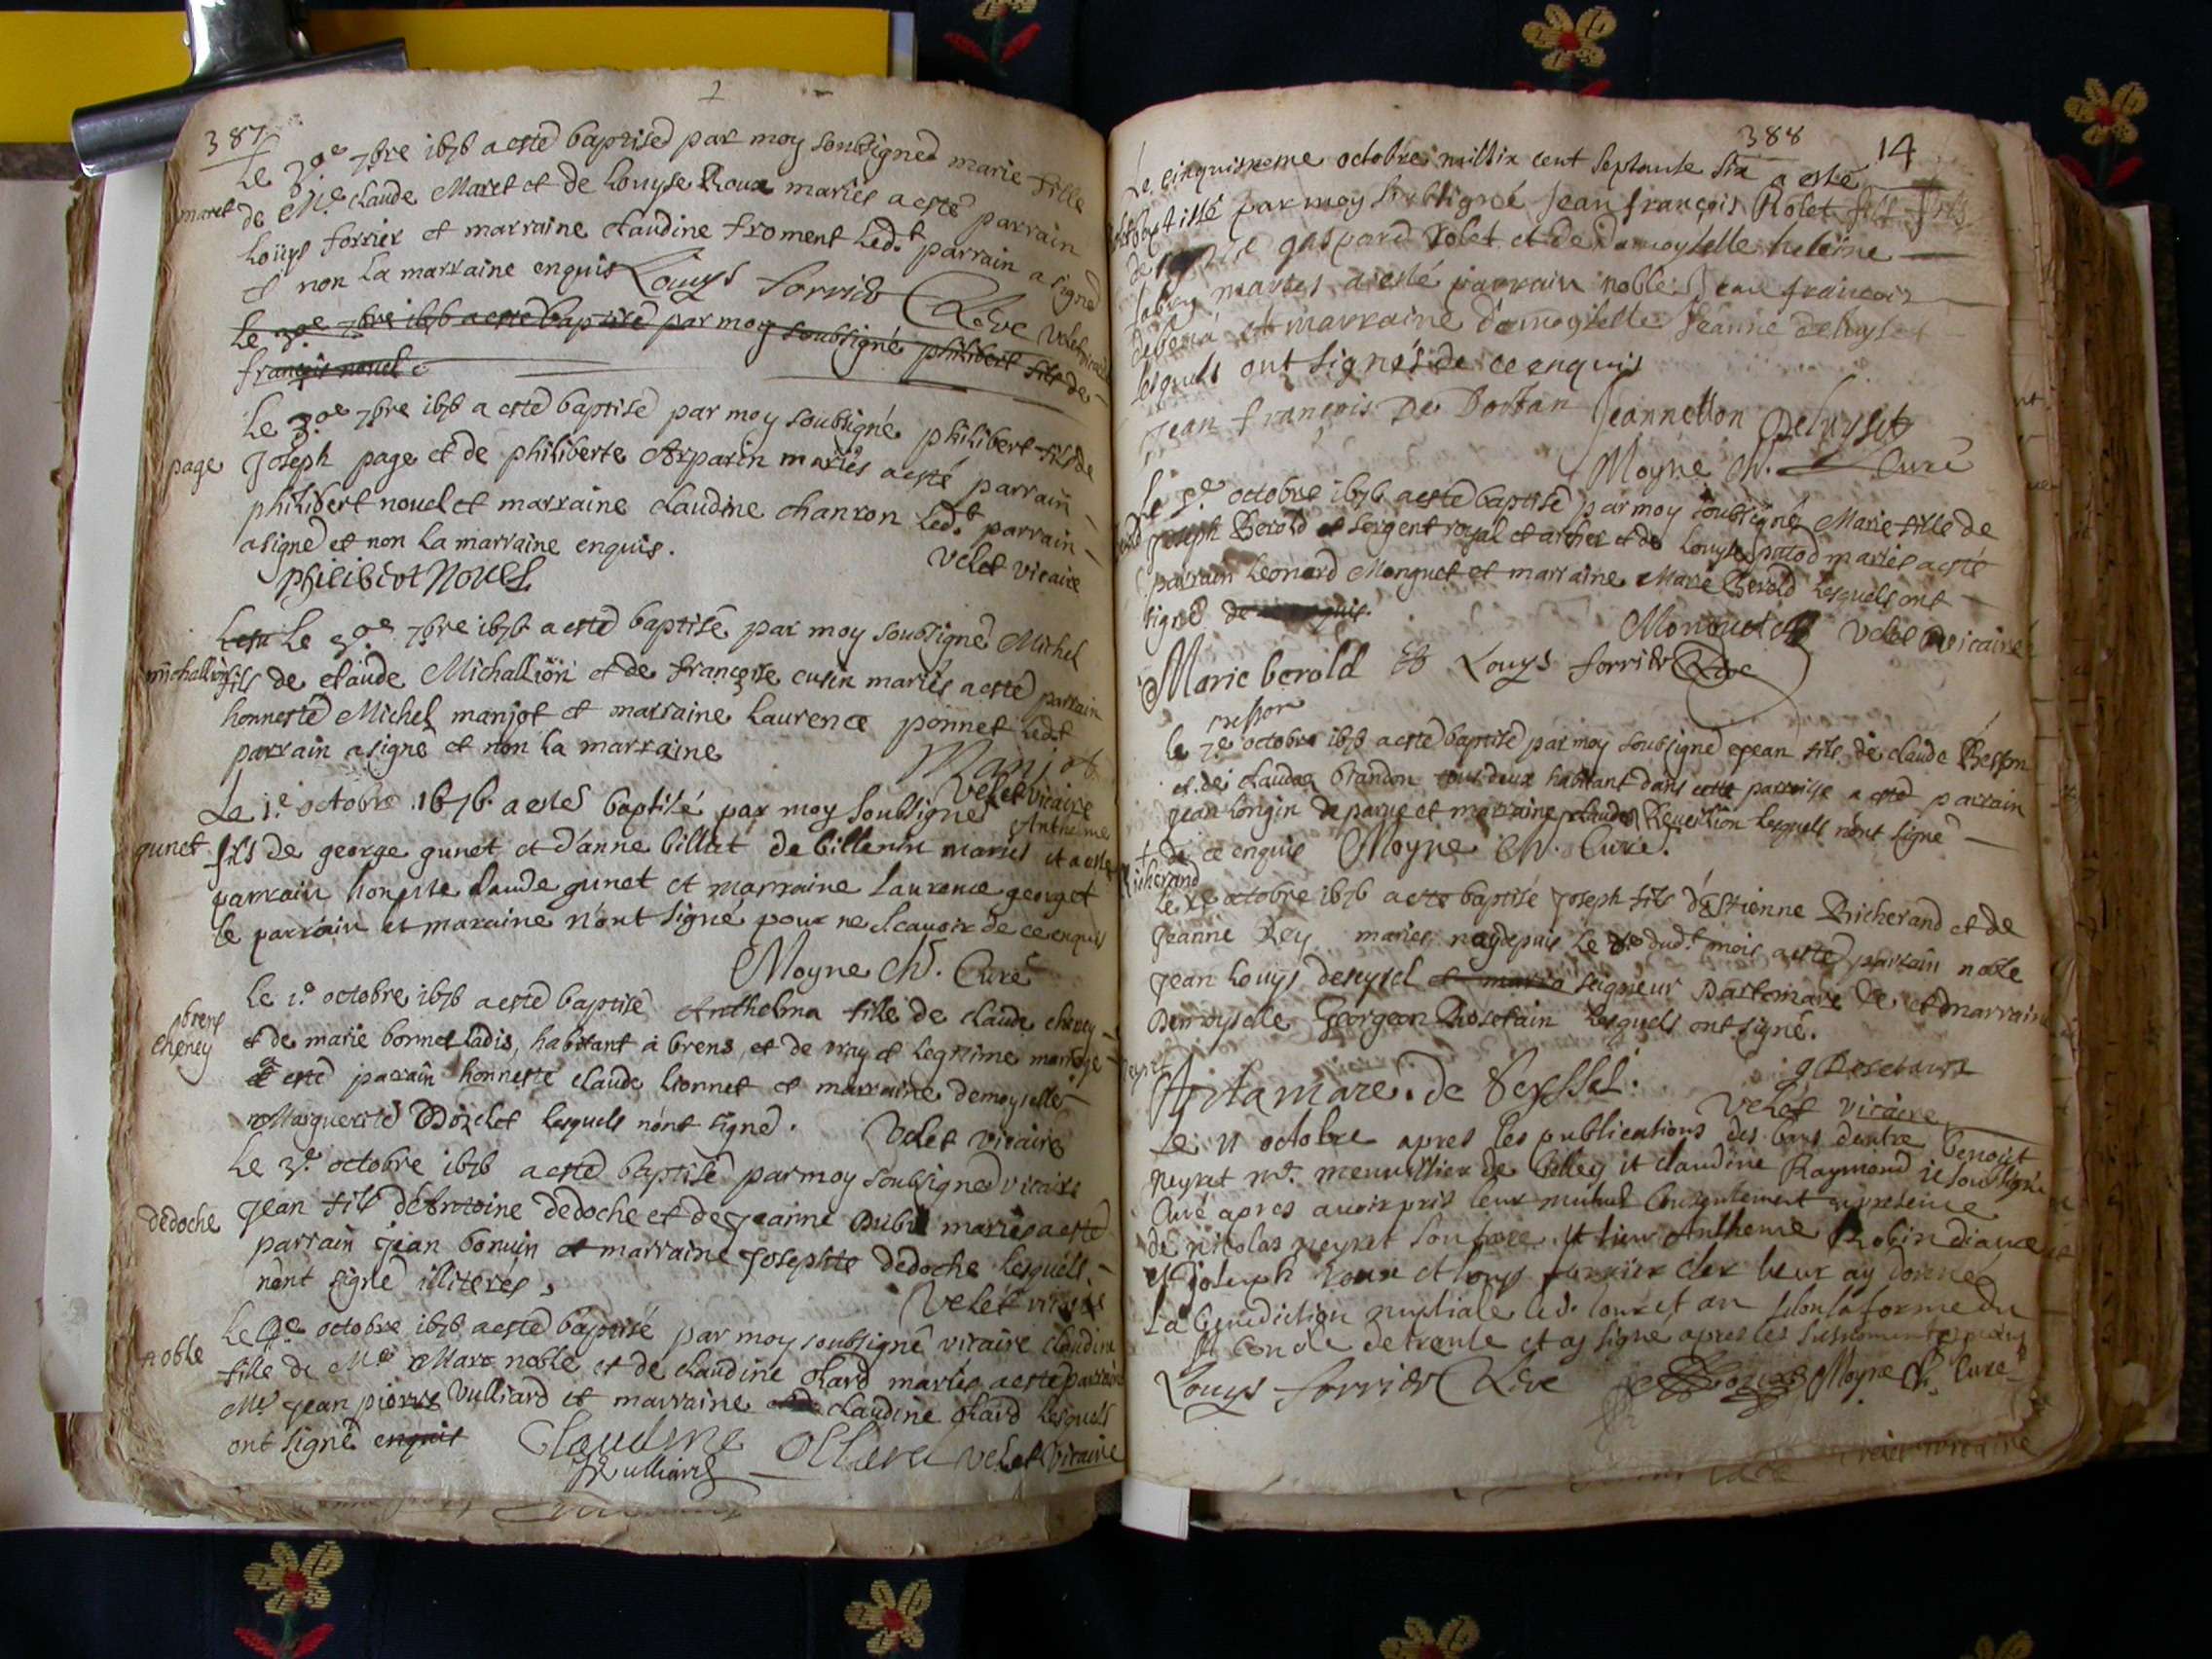 387
Le 30e 7bre 1676 a esté baptisé par moy soubsigné marie fille
maret
de Me claude Maret et de Louyse Roux mariés a esté parrain
Louys forrier et marraine claudine froment led.t parrain a signé
et non la marraine enquis Louys forrier Clerc Velet vicaire
Le 30e 7bre 1676 a esté baptisé par moy soubsigné philibert fils de
françois nouel
Le 30e 7bre 1676 a esté baptisé par moy soubsigné philibert fils de
page
Joseph page et de philiberte Arparin mariés a esté parrain
philibert nouel et marraine claudine chanron led.t parrain
a signé et non la marraine enquis.
Velet vicaire
philibert Nouel
Le 30e 7bre 1676 a esté baptisé par moy soubsigné Michel
michallion
fils de claude Michallion et de françoise cusin mariés a esté parrain
honneste Michel manjot et marraine Laurence ponnet led.t
parrain a signé et non la marraine
Manjot
Velet vicaire
Le 1.e octobre 1676. a esté baptisé par moy soubsigné Antheme
gunet
fils de george gunet et d'anne billiat de billenin mariés et a esté
parrain honneste Claude gunet et marraine Laurence georget
le parrain et maraine n'ont signé pour ne scavoir de ce enquis
Moyne ch. Curé
Le 1.e octobre 1676 a esté baptisé Anthelma fille de claude cheney
brens
cheney
et de marie bonnet ladis, habitant a brens, et de vray et legitime mariage
a esté parrain honneste claude lionnet et marraine demoyselle
Marguerite Dozelet lesquels n'ont signé. Velet vicaire
Le 3.e octobre 1676 a esté baptisé par moy soubsigné vicaire
dedoche
Jean fils d'Antoine dedoche et de Jeanne Dubil mariés a esté
parrain Jean bonuin et marraine Josephte dedoche lesquels
n'ont signé illiteres,
Velet vicaire
Le 4e octobre 1676 a esté baptisé par moy soubsigné vicaire claudine
noble
fille de Me Marc noble et de claudine chard mariés a esté parrain
Me Jean pierre Vulliard et marraine claudine chard lesquels
ont signé enquis Claudine Chard Velet vicaire
Vulliard
388 14
Le cinquiesme octobre mil six cent septante six a esté
baptisé par moy soubsigné Jean françois Rolet fils
de gaspard Rolet et de damoyselle heleine
mariés a esté parrain noble Jean françois
et marraine damoyselle Jeanne deluyset
lesquels ont signés de ce enquis
Jean françois De Dortan Jeannetton Deluyset
Moyne ch. Curé
Le 5.e octobre 1676 a esté baptisé par moy soubsigné Marie fille de
Joseph Berold et sergent royal et archer et de Louyse patod mariés a esté
parrain Leonard Monguet et marraine Marie Berold lesquels ont
signé de
Monguet Velet vicaire
Marie berold Louys forrier Clerc
Le 7.e octobre 1676 a esté baptisé par moy soubsigné Jean fils de claude Besson
et de claudaz brandon tous deux habitant dans cette parroisse a esté parrain
Jean Longin de parve et marraine claudaz Reveillion lesquels n'ont signé
de ce enquis Moyne ch. Curé.
Richerand
Le octobre 1676 a esté baptisé Joseph fils d'Estienne Richerand et de
Jeanne Rey mariés nay depuis le 8.e dud.t mois a esté parrain noble
Jean Louys deseyssel et mara seigneur Dartemare et marraine
Demoyselle Georgeon Rosetain lesquels ont signé.
Artamare. de Seyssel. g Rosetain
Velet vicaire
Le 11 octobre apres les publications des bans dentre benoict
neyret me menuisier de belley et claudine Raymond ie soubsigné
Curé apres avoir pris leur mutuel Consentement en presence
de nicolas neyret son frere et sieur Antheme Robin diacre
et Joseph roux et louys forrier clerc leur ay donné
La benediction nuptiale selon la forme du
St Concile de trente et ay signé apres les susnommés
Louys forrier Clerc Moyne ch. Curé